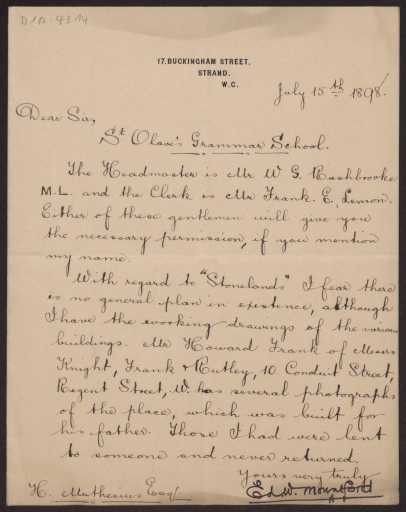 D 10 - 4314
17. BUCKINGHAM STREET,
STRAND.
W.C.
July 15th 1898.
Dear Sir,
St Olave's Grammar School.
The Headmaster is Mr W. G. Rushbrooke
M.L. and the Clerk is Mr Frank. E. Lemon.
Either of these gentlemen will give you
the necessary permission, if you mention
my name.
With regard to "Stonelands" I fear there
is no general plan in existence, although
I have the working drawings of the various
buildings. Mr Howard Frank of Messrs
Knight, Frank & Rutley, 10 Conduit Street,
Regent Street, W. has several photographs
of the place, which was built for
his father. Those I had were lent
to someone and never returned
Yours very truly
H. Muthesius Esq
Ed. W. Mountford